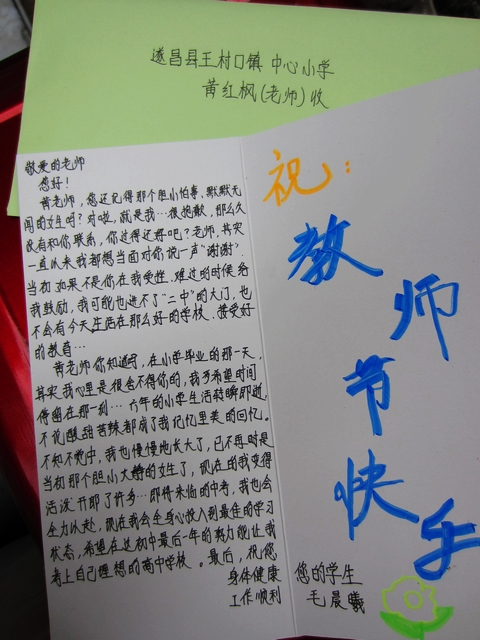 遂昌县王村口镇 中心小学
黄红枫(老师)收
敬爱的老师
您好!
黄老师,您还记得那个胆小怕事,默默无
闻的女生吗?对啦,就是我…很抱歉,那么久
没有和你联系,你过得还好吧?老师,其实
一直以来我都想当面对你说一声“谢谢”.
当初如果不是你在我受挫.难过的时候给
我鼓励,我可能也进不了“二中”的大门,也
不会有今天生活在那么好的学校.接受好
的教育…
黄老师你知道吗,在小学毕业的那一天,
其实我心里是很舍不得你的,我多希望时间
停留在那一刻…六年的小学生活转瞬即逝
不论酸甜苦辣都成了我记忆里美的回忆。
不知不觉中,我也慢慢地长大了,已不再时是
当初那个胆小的女生了,现在的我变得
活泼开朗了许多…即将来临的中考,我也会
全力以赴,现在我会全身心投入到最佳的学习
状态,希望在这初中最后一年的努力能让我
考上自己理想的高中学校。最后,祝您
身体健康
工作顺利
祝:
教
师
节
快
乐
您的学生
毛晨曦